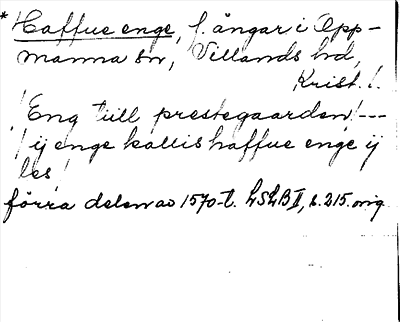 * Haffue enge, f. ängar i Opp-
manna sn, Villands hd,
Krist. l.
/Eng tiill prestegaarden/---
/ij enge kallis haffue enge ij
les/
förra delen av 1570-t. LSLB II, s. 215. orig